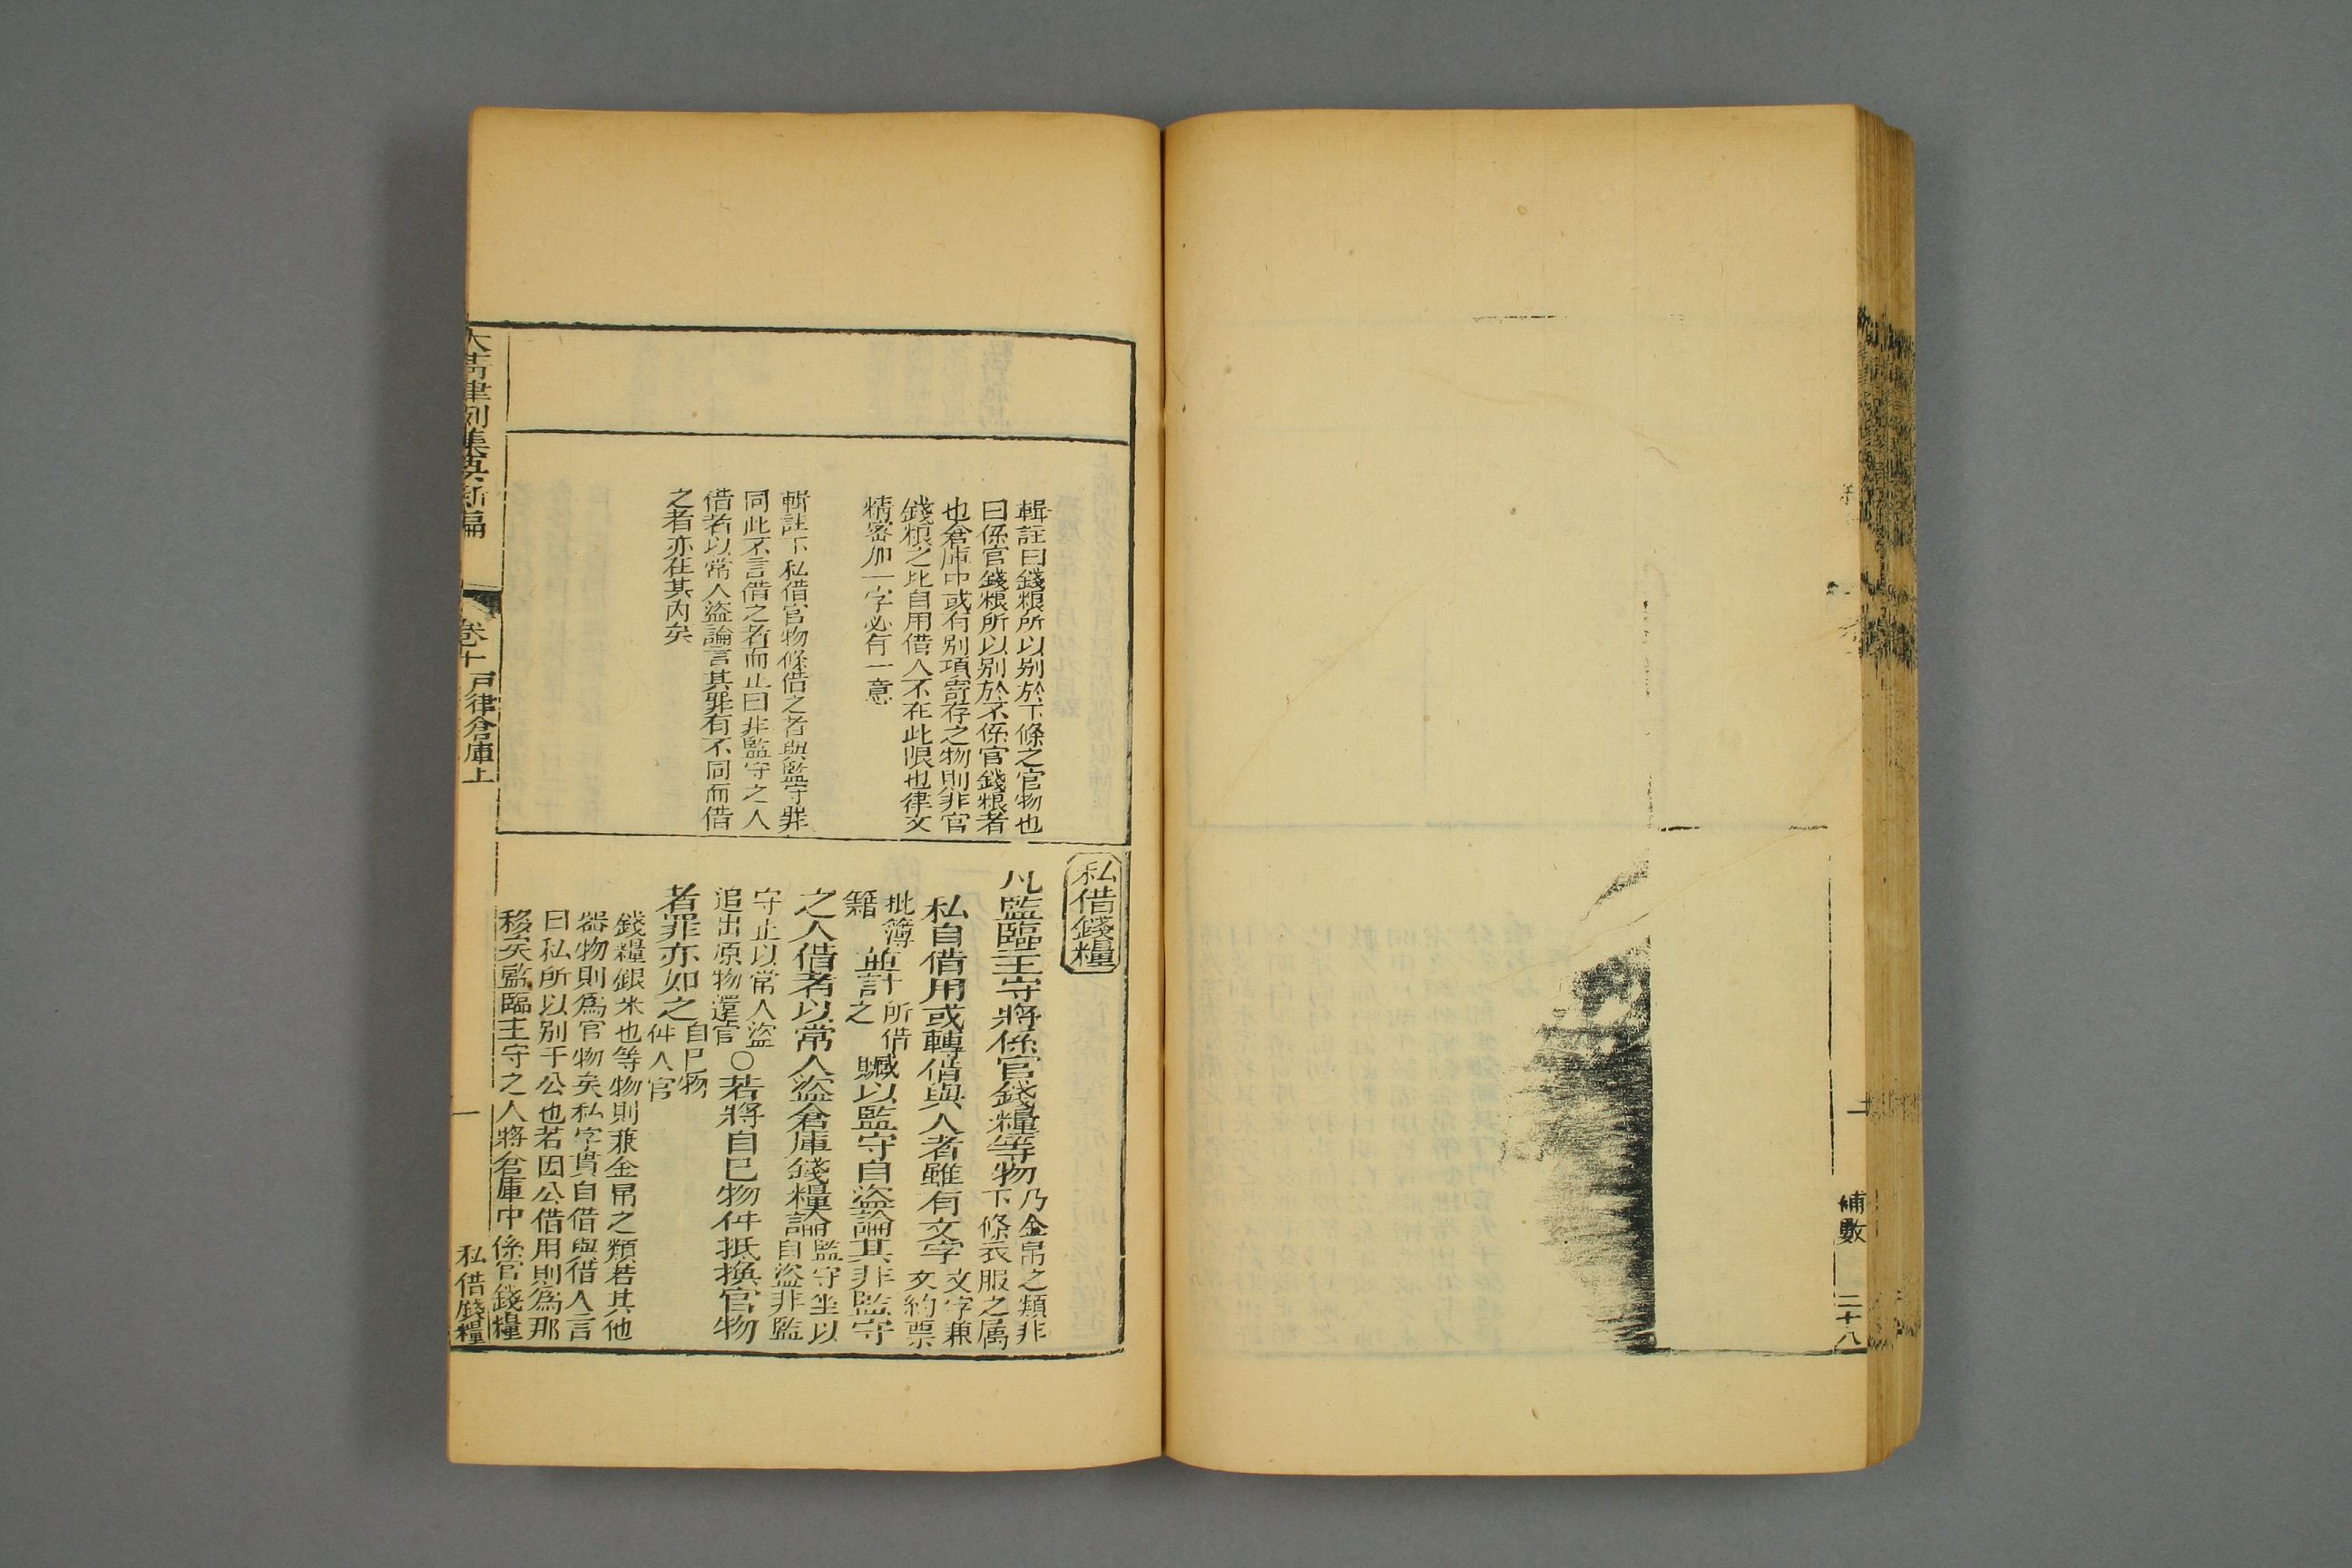 補數
二十八
輯註曰錢粮所以别於下條之官物也
曰係官錢粮所以别於不係官錢粮者
也倉庫中或有别項寄存之物則非官
錢粮之比自用借人不在此限也律文
精密加一字必有一意
輯註下私借官物條借之者與監守罪
同此不言借之者而止曰非監守之人
借者以常人盜論言其罪有不同而借
之者亦在其内矣
私借錢糧
凡監臨主守將係官錢糧等物乃金帛之類非
下條衣服之属
私自借用或轉借與人者雖有文字文字兼
文約票
批簿
籍
並計所借
之
贓以監守自盜論其非監守
之人借者以常人盜倉庫錢糧論監守坐以
自盜非監
守止以常人盜
追出原物還官
○若將自已物件抵換官物
者罪亦如之自已物
件入官
錢糧銀米也等物則兼金帛之類若其他
器物則爲官物矣私字貫自借與借人言
曰私所以别于公也若因公借用則爲那
移矣監臨主守之人將倉庫中係官錢糧
大清律例集要新編
卷十
戸律倉庫上
一
私借錢糧